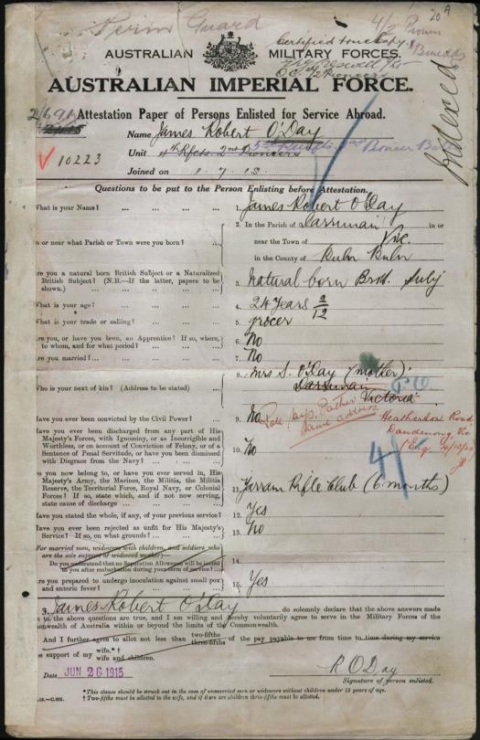 Perm Guard
20A
AUSTRALIAN MILITARY FORCES.
Certified true copy
AUSTRALIAN IMPERIAL FORCE.
Attestation Paper of Persons Enlisted for Service Abroad.
Name James Robert O'Day
Unit 4th Rfcts. 2nd Pioneers
10223
Joined on 1.7.15.
Questions to be put to the Person Enlisting before Attestation.
What is your Name? ... 1. James Robert O'Day
2. In the Parish of Darriman in or
or near what Parish or Town were you born? ... near the Town of Vic.
in the County of Buln Buln
Are you a natural born British Subject or a Naturalized
British Subject? (N.B.—If the latter, papers to be
shown.) 3. Natural born Brit. Subj
What is your age? ... 4. 24 Years 2/12
What is your trade or calling? ... 5. grocer
Are you, or have you been, an Apprentice? If so, where,
to whom, and for what period? 6. No
Are you married? ... 7. No
8. Mrs S. O'Day (mother)
Who is your next of kin? (Address to be stated) Darriman
Victoria
Have you ever been convicted by the Civil Power? 9. No
same address
Heatherton Road
Dandenong Vic
Have you ever been discharged from any part of His
Majesty's Forces, with Ignominy, or as Incorrigible and
Worthless, or on account of Conviction of Felony, or of a
Sentence of Penal Servitude, or have you been dismissed
with Disgrace from the Navy? 10. No
Do you now belong to, or have you ever served in, His
Majesty's Army, the Marines, the Militia, the Militia
Reserve, the Territorial Force, Royal Navy, or Colonial
Forces? If so, state which, and if not now serving,
state cause of discharge 11. Yarram Rifle Club (6 months)
Have you stated the whole, if any, of your previous service? 12. Yes
Have you ever been rejected as unfit for His Majesty's
Service? If so, on what grounds? 13. No
For married men, widowers with children, and soldiers who
are the sole support of widowed mother—
Do you understand that no Separation Allowance will be issued
to you after embarkation during your term of service? 14.
Are you prepared to undergo inoculation against small pox
and enteric fever? 15. Yes
James Robert O'Day do solemnly declare that the above answers made
to the above questions are true, and I am willing and hereby voluntarily agree to serve in the Military Forces of
Commonwealth of Australia within or beyond the limits of the Commonwealth.
And I further agree to allot not less than two-fifths three-fifths of the pay payable to me from time to time during my service
support of my wife.*†
wife and children.
Date JUN 26 1915
R O'Day
Signature of person enlisted.
*This clause should be struck out in the case of unmarried men or widowers without children under 18 years of age.
† Two-fifths must be allotted to the wife, and if there are children three-fifths must be allotted.